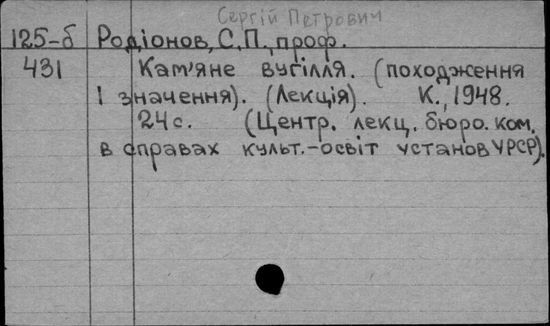 Сергій Петрович
125-б Родіонов, С.П., проф.
431 Кам'яне вугілля. (походження
і значення). (Лекція). К., 1948.
24 с. (Центр. лекц. бюро. ком.
в справах культ.-освіт установ УРСР).